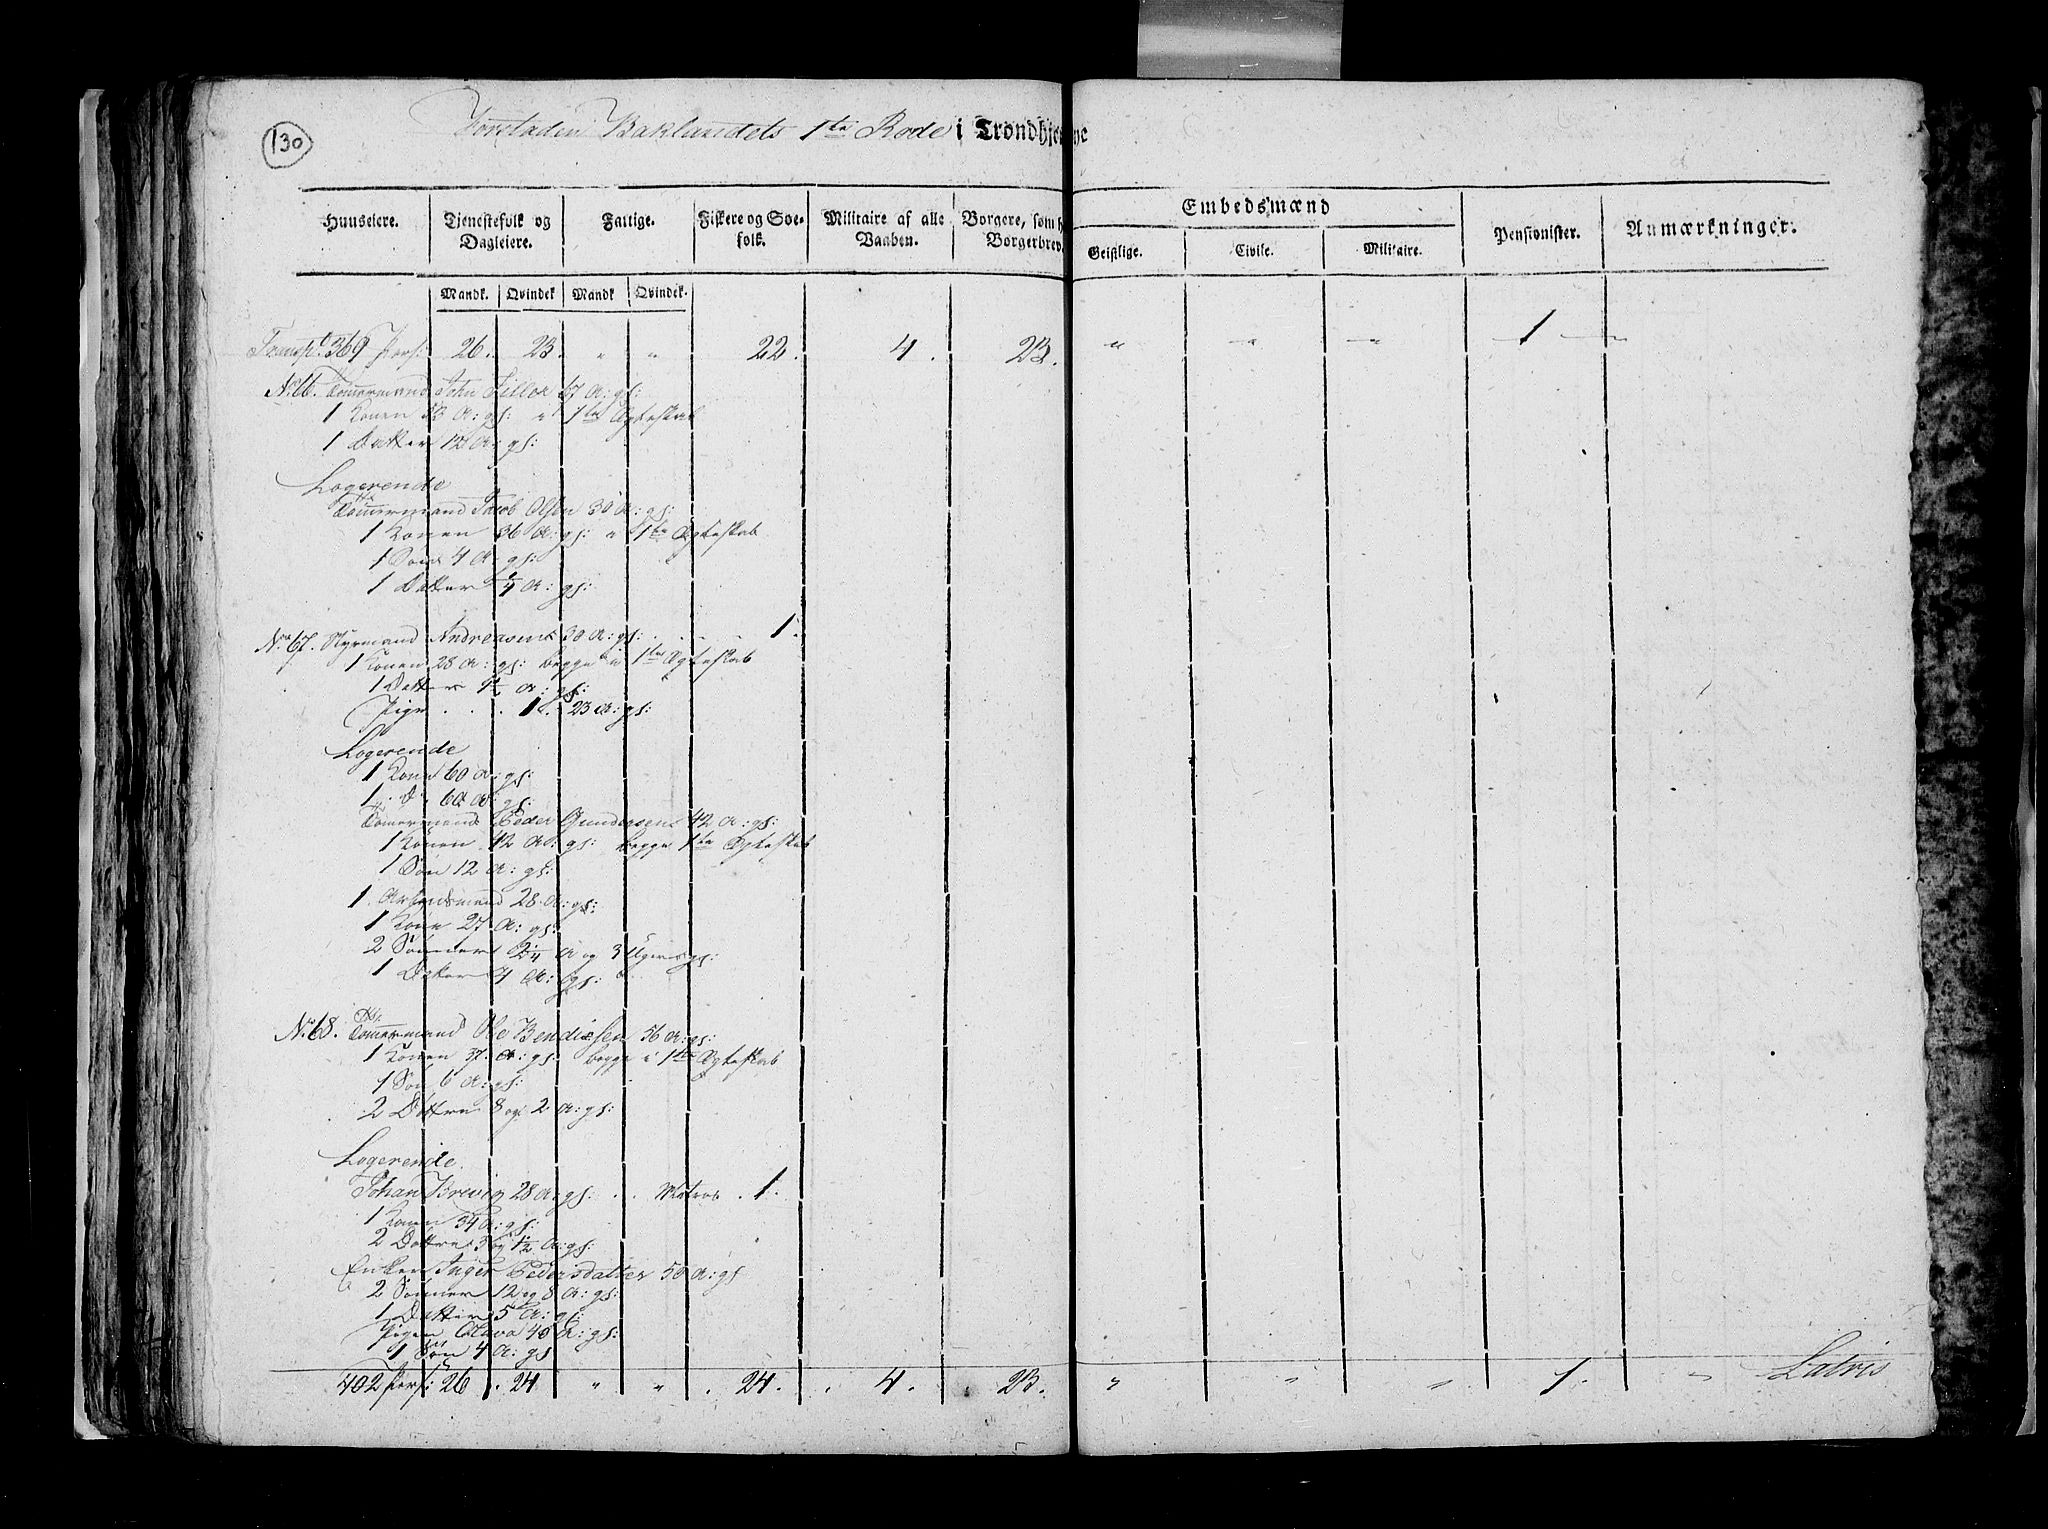 130
Forstaden Baklandets 1te Rode i Trondhjem
Huuseiere. Tjenestefolk og Dagleiere. Fattige. Fiskere og Søefolk. Militaire af alle Vaaben. Borgere, som h Borgerbrev. Embedsmænd Pensionister. Anmærkninger.
Geistlige. Civile. Militaire.
Mandk. Qvindek Mandk Qvindek.
Transpt. 369 Pers: 26. 23. " " 22. 4. 23. " " " 1
No 66. Tömermand John Filler 57 A: gl:
1 Konen 53 A: gl: " 1te Ægteskab
1 Datter 12 A: gl:
Logerende
Tömermand Jacob Olsen 30 A: gl:
1 Konen 36 A: gl: " 1te Ægteskab
1 Søn 4 A: gl:
1 Datter 1/4 A: gl:
No 67. Styrmand Andreasen 30 A: gl: . . . 1.
1 Konen 28 A: gl: begge i 1te Ægteskab
1 Datter A: gl:
Pige . . . 1. 23 A: gl:
Logerende
1 Kone 60 A: gl:
1 Do 60 A: gl:
Tömermand Peder Gundersen 42 A: gl:
1 Konen 42 A: gl: begge 1te Ægteskab
1 Søn 12 A: gl:
1 Arbeidsmand 28 A: gl:
1 Kone 27 A: gl:
2 Sønner 2 1/4 A og 3 Uger gl:
1 Datter 4 A: gl:
No 68. Tömermand Ole Bendixsen 36 A: gl:
1 Konen 37 A: gl: begge i 1te Ægteskab
1 Søn 6 A: gl:
2 Döttre 8 og 2 A: gl:
Logerende
Johan Brevig 28 A: gl: . . Matros . 1.
1 Konen 34 A: gl:
2 Döttre 3 og 1/2 A: gl:
Enken Inger Pedersdatter 50 A: gl
2 Sønner 12 og 8 A: gl:
1 Datter 5 A: gl:
Pigen Olava 40 A: gl:
1 Søn 4 A: gl
402 Pers: 26 . 24 " " . 24. . 4. . 23. " " " 1. " Latris